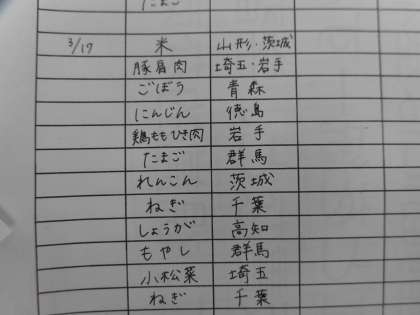 たまご
3/17 米 山形・茨城
豚肩肉 埼玉・岩手
ごぼう 青森
にんじん 徳島
鶏ももひき肉 岩手
たまご 群馬
れんこん 茨城
ねぎ 千葉
しょうが 高知
もやし 群馬
小松菜 埼玉
ねぎ 千葉